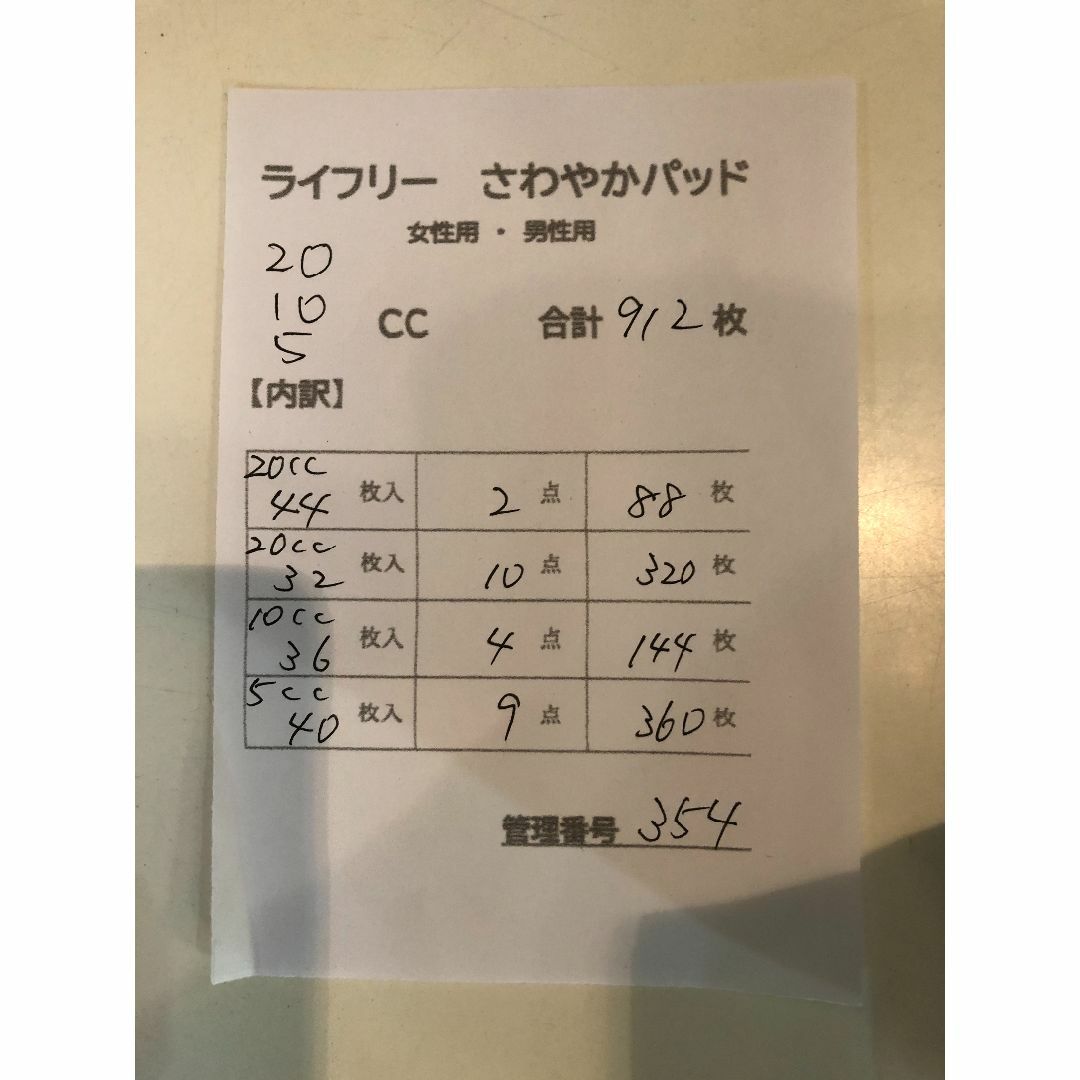 ライフリー さわやかパッド
女性用・男性用
20
10
5
CC 合計 912 枚
【内訳】
20cc
44 枚入 2 点 88 枚
20cc
32 枚入 10 点 320 枚
10cc
36 枚入 4 点 144 枚
5cc
40 枚入 9 点 360 枚
管理番号 354